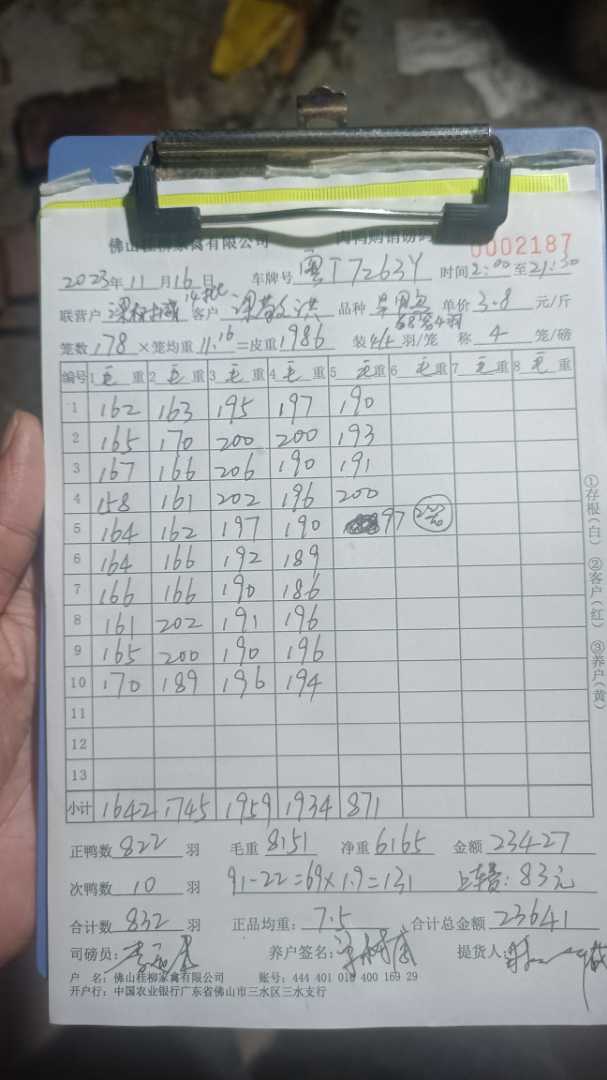 佛山桂柳家禽有限公司
0002187
2023年11月16日 车牌号 粤T7263Y 时间2:00至21:30
联营户 14批 客户 品种 单价3.8元/斤
68笼4羽
笼数178×笼均重11.16=皮重1986 装4/5羽/笼 称4笼/磅
编号 1毛重 2毛重 3毛重 4毛重 5毛重 6毛重 7毛重 8毛重
1 162 163 195 197 190
2 165 170 200 200 193
3 167 166 206 190 191
4 158 161 202 196 200
5 164 162 197 190 97 2笼
6 164 166 192 189
7 166 166 190 186
8 161 202 191 196
9 165 200 190 196
10 170 189 196 194
11
12
13
小计 1642 1745 1959 1934 871
①存根(白) ②客户(红) ③养户(黄)
正鸭数822羽 毛重8151 净重6165 金额23427
次鸭数10羽 91-22=69×1.9=131 上车费:83元
合计数832羽 正品均重:7.5 合计总金额23641
司磅员: 养户签名: 提货人:
户 名:佛山桂柳家禽有限公司 账号:444 401 010 400 169 29
开户行:中国农业银行广东省佛山市三水区三水支行